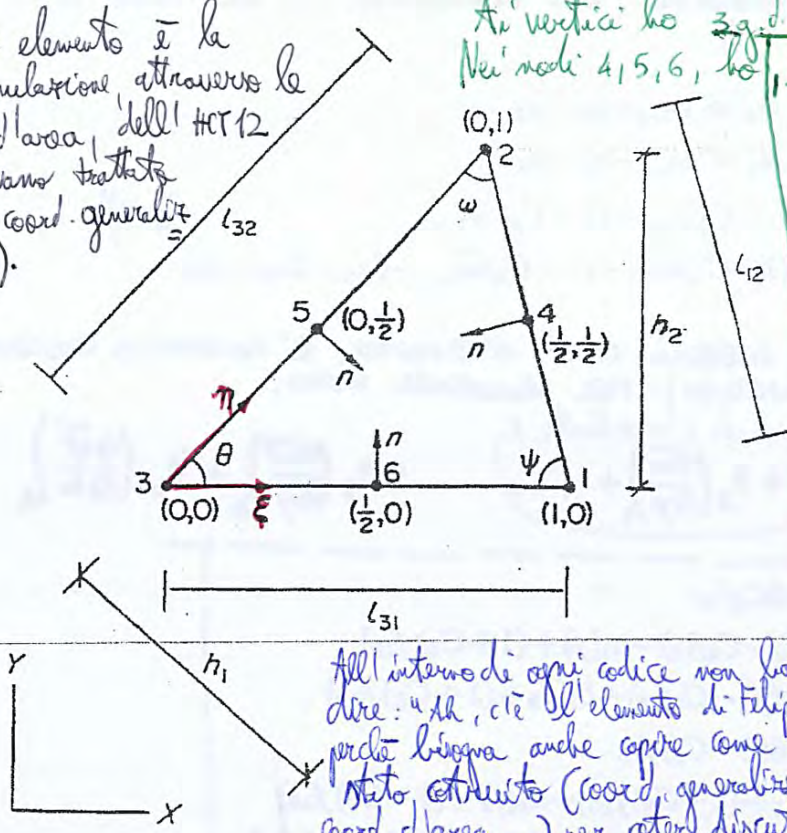 elemento è la
mulazione, attraverso le
d'area, dell' HCT 12
vano trattate
coord. generaliz
=
).
Ai vertici ho 3 g.d.
Nei nodi 4, 5, 6, ho 1
(0,1)
2
ω
l32
5
(0,½)
n
4
(½,½)
n
h2
l12
η
θ
3
(0,0)
ξ
n
6
(½,0)
ψ
1
(1,0)
l31
h1
Y
X
All'interno de ogni codice non
dire: "Ah, c'è l'elemento di
perchè bisogna anche capire come
stato costruito (coord. 
coord. d'area ) per poter